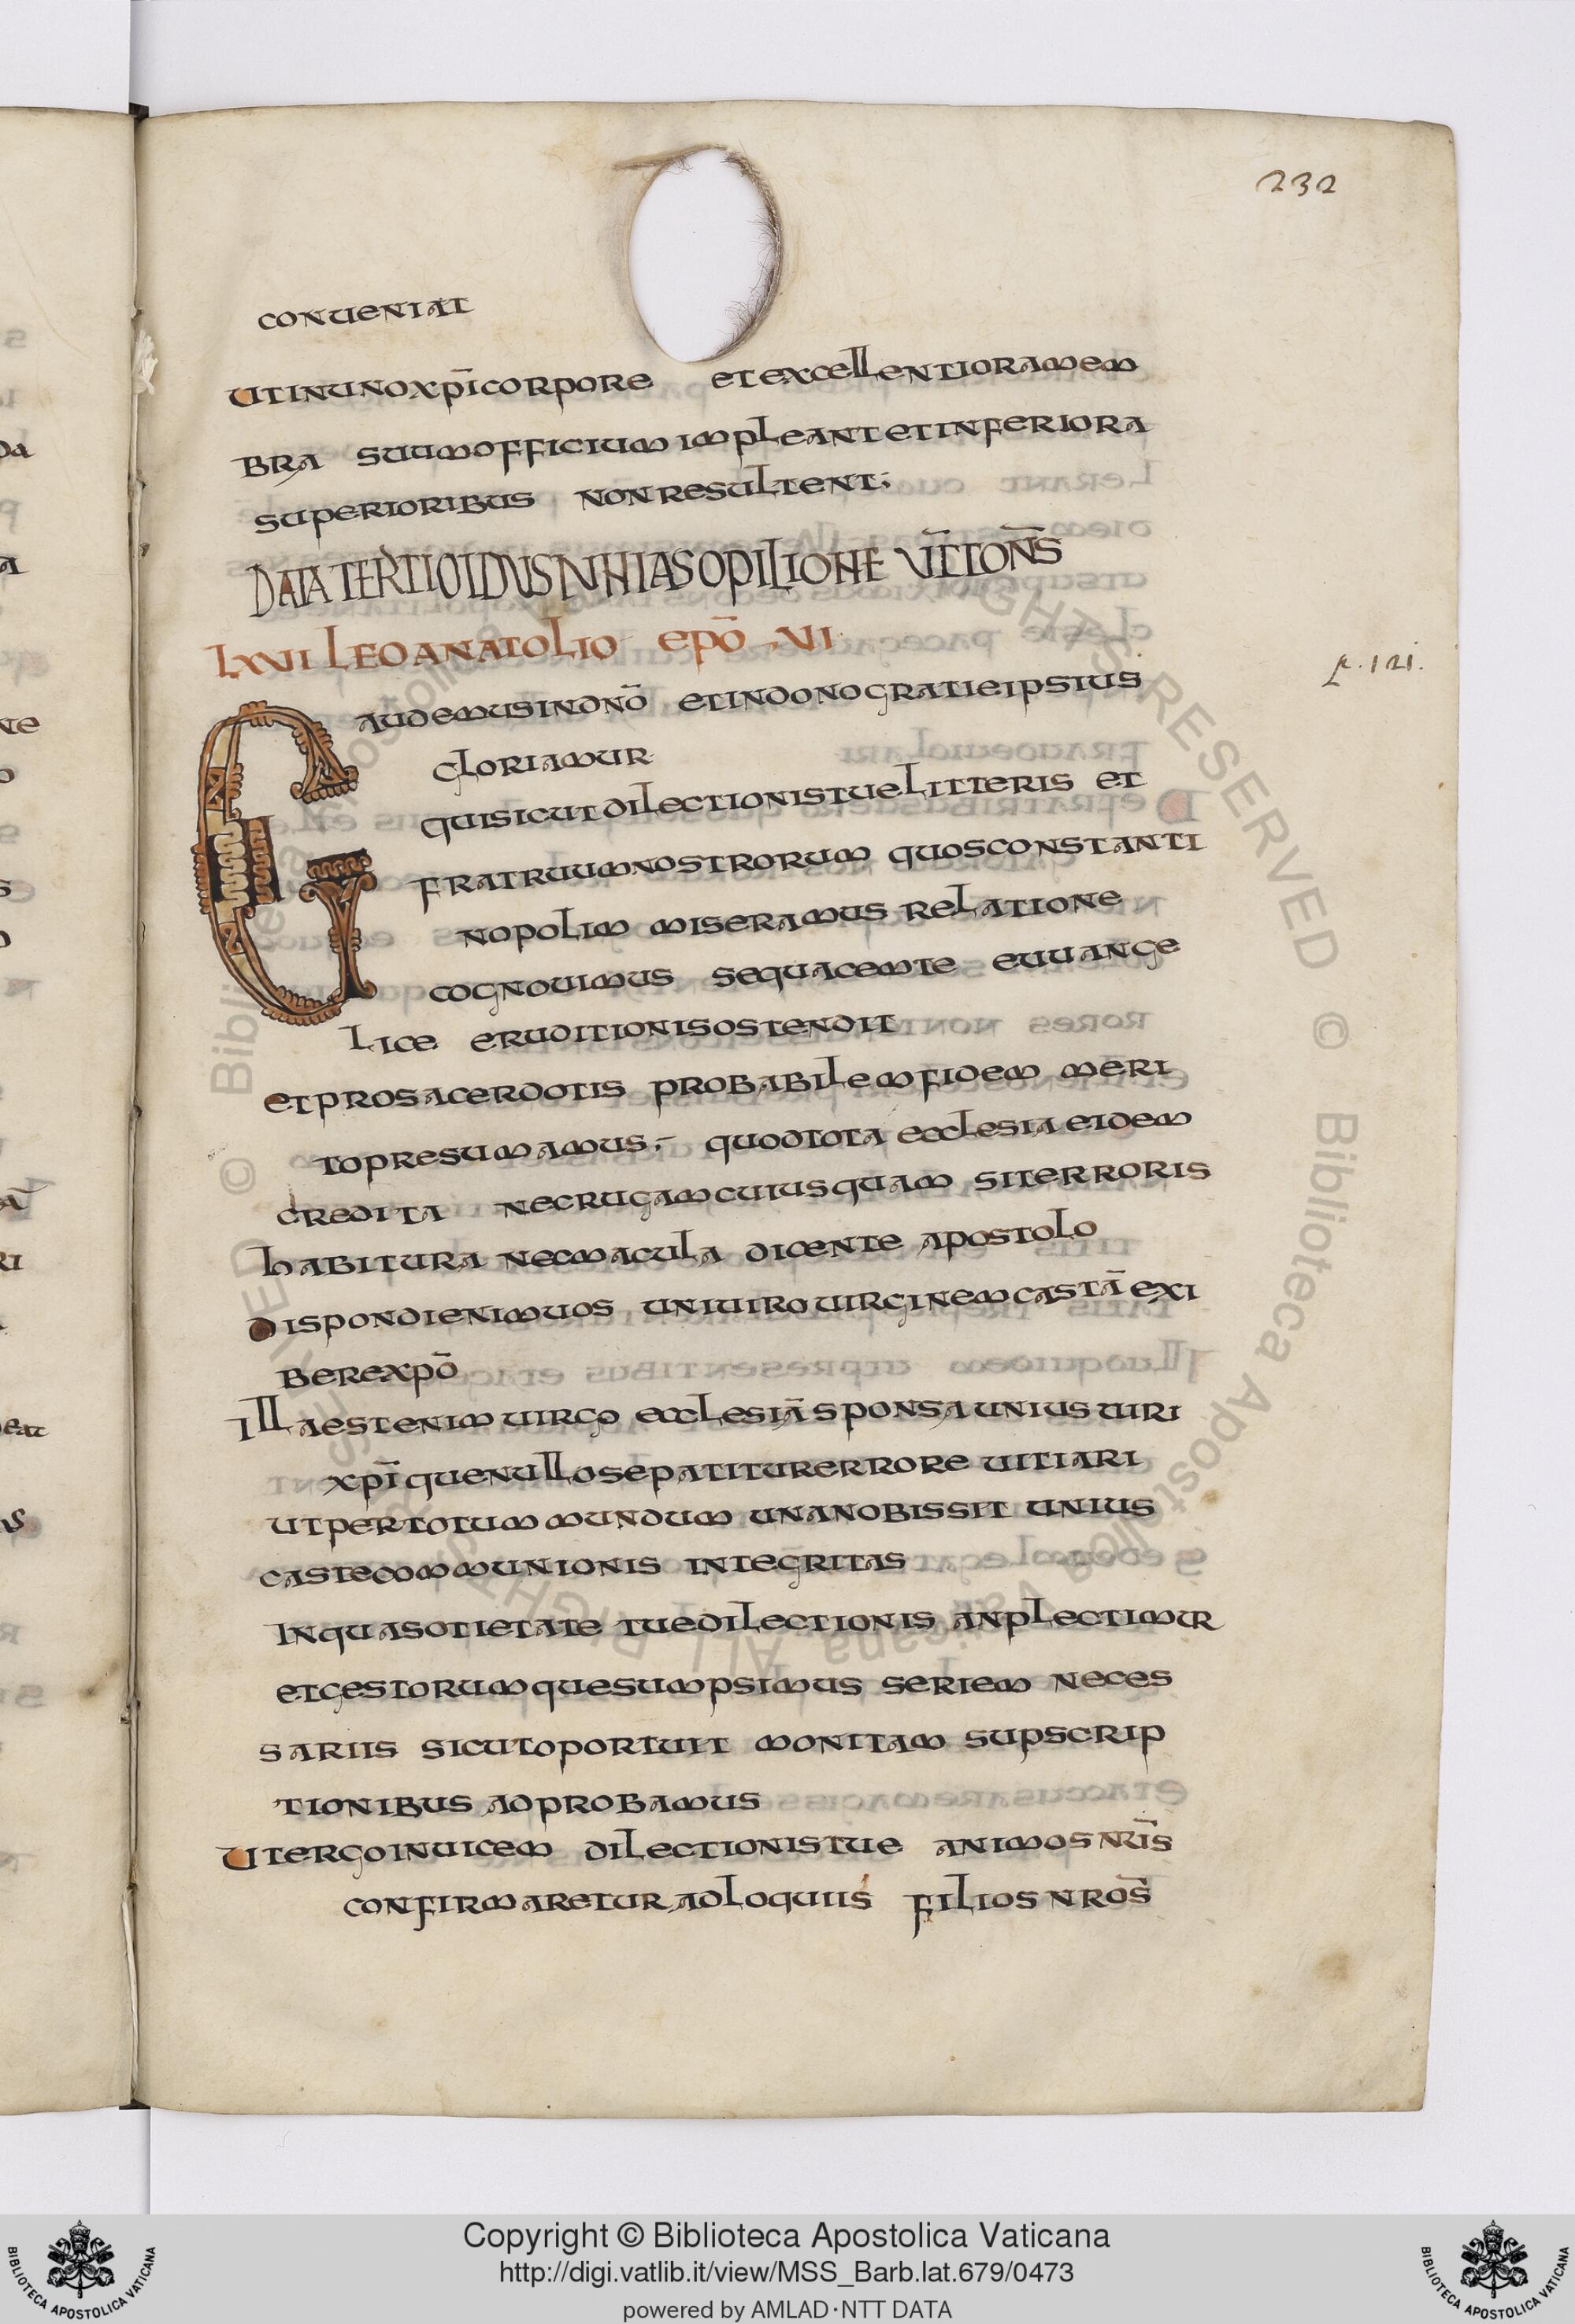 232
conueniat
utinunoxp̄icorpore etexcellentioramem
bra suumofficium impleantetinferiora
superioribus nonresultent;
DATA TERTIO IDUS NHIAS OPILIONE UC̄CONS̄
LXVI LEO ANATOLIO EPŌ VI
p. 121.
Gaudemusindn̄o etindonogratieipsius
gloriamur
quisicutdilectionistuelitteris et
fratruumnostrorum quosconstanti
nopolim miseramus relatione
cognouimus sequacemte euuange
lice eruditionisostendit
etprosacerdotis probabilemfidem meri
topresumamus;- quodtota ecclesiaeidem
credita necrugamcuiusquam siterroris
habitura necmacula dicente apostolo
dispondienimuos uniuirouirginemcastāexi
berexpō
Illaestenimuirgo ecclesiāsponsauniusuiri
xp̄iquenullosepatiturerrore uitiari
utpertotummundum unanobissit unius
castecommunionis integritas
Inquasotietate tuedilectionis anplectimur
etgestorumquesumpsimus seriem neces
sariis sicutoportuit monitam supscrip
tionibus adprobamus
Utergoinuicem dilectionistue animosnr̄is
confirmaretur adloquiis filiosnros̄
Copyright © Biblioteca Apostolica Vaticana
http://digi.vatlib.it/view/MSS_Barb.lat.679/0473
powered by AMLAD·NTT DATA
BIBLIOTECA APOSTOLICA VATICANA
BIBLIOTECA APOSTOLICA VATICANA